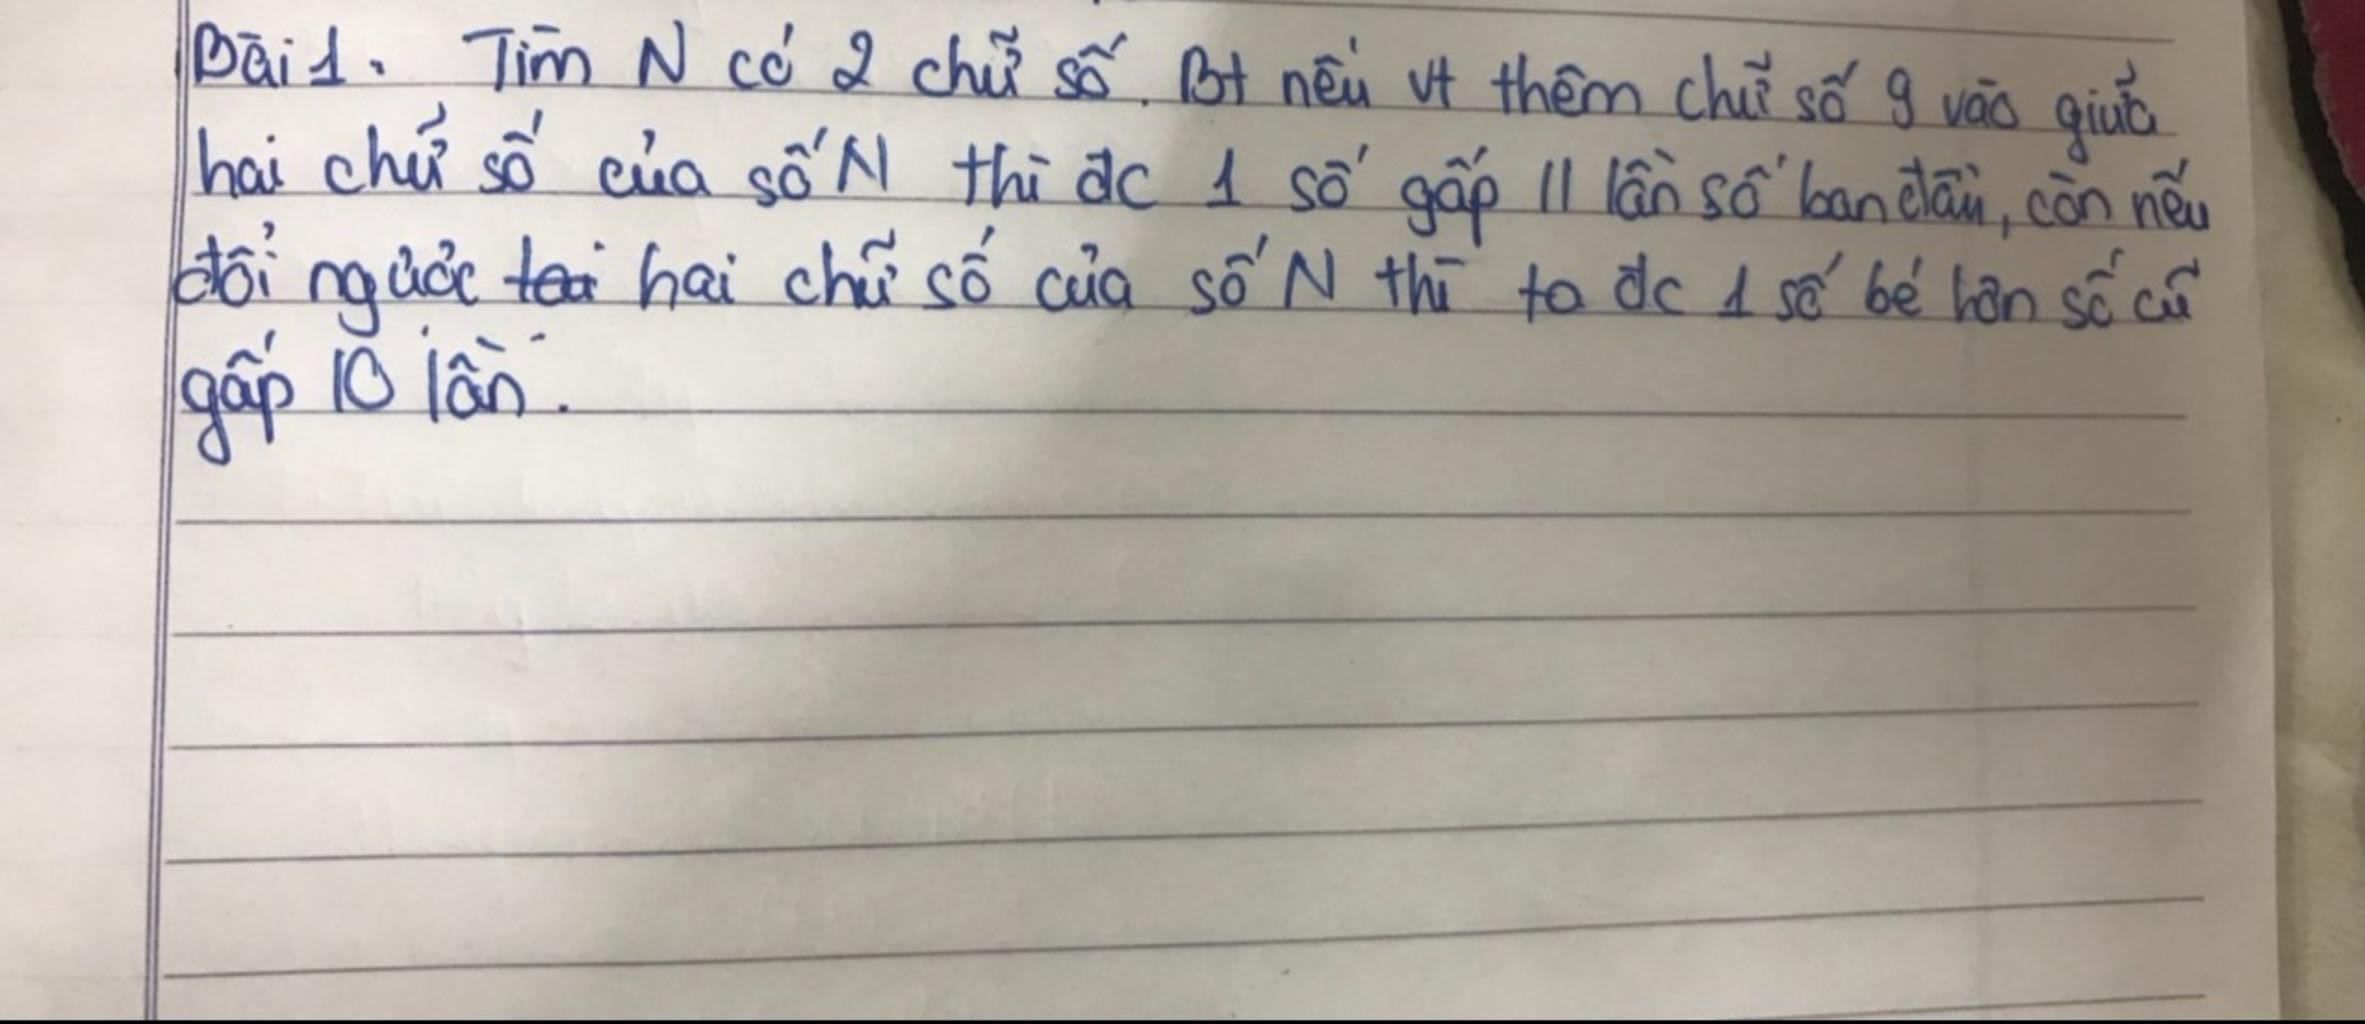 Bài 1. Tìm N có 2 chữ số. Bt nếu vt thêm chữ số 9 vào giữa
hai chữ số của số N thì đc 1 số gấp 11 lần số ban đầu, còn nếu
đổi ngược hai chữ số của số N thì ta đc 1 số bé hơn số cũ
gấp 10 lần.